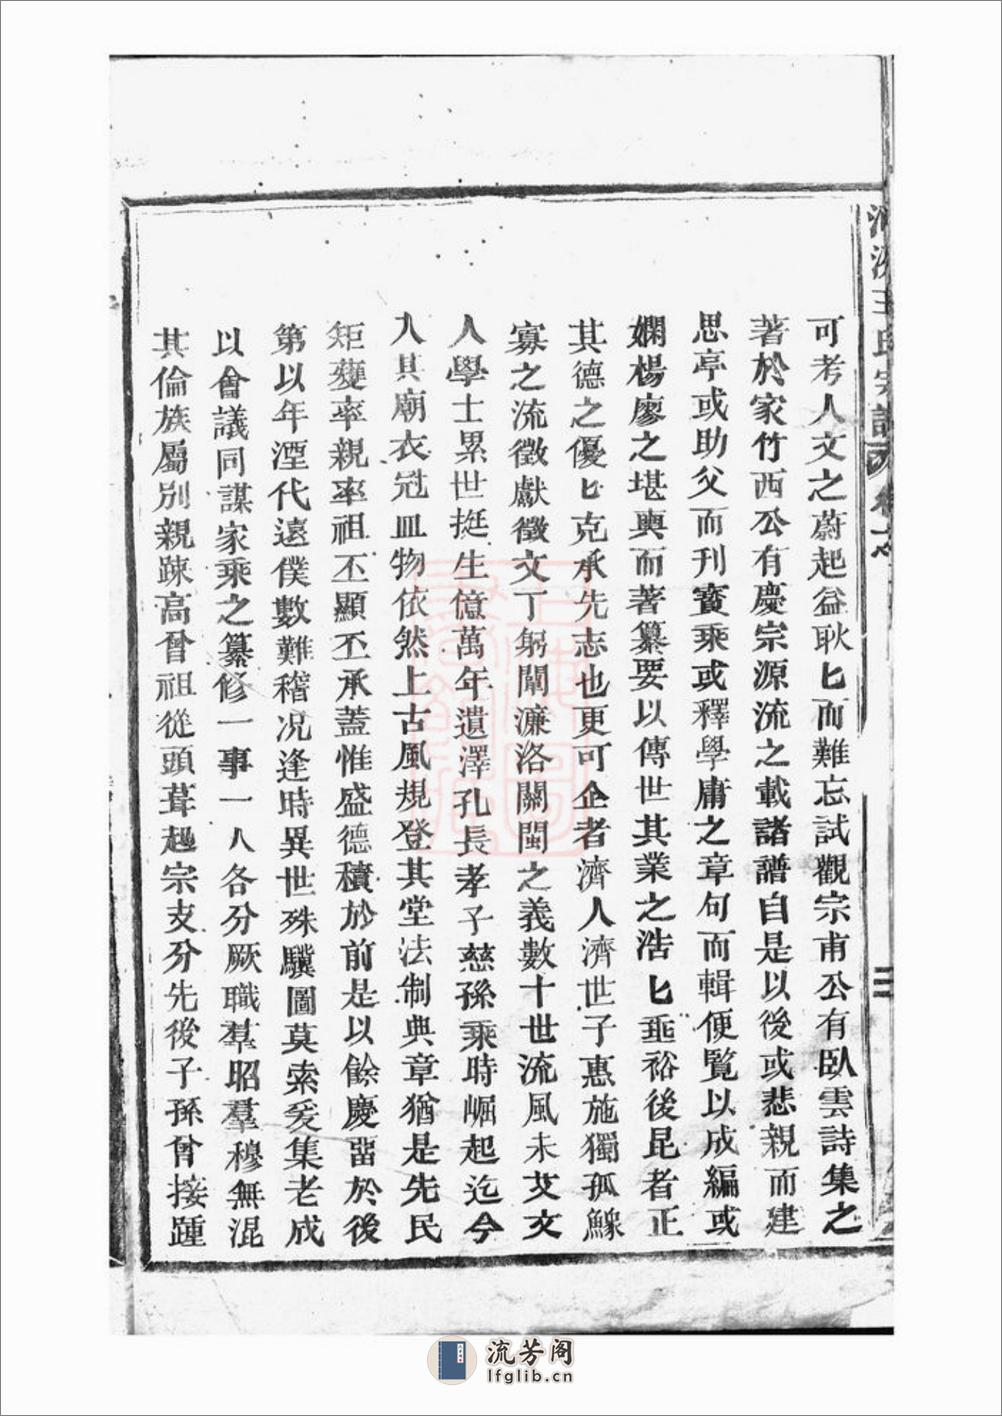 王氏宗譜
可考人文之蔚起益耿匕而難忘試觀宗甫公有臥雲詩集之
著於家竹西公有慶宗源流之載諸譜自是以後或悲親而建
思亭或助父而刊寳乘或釋學庸之章句而輯便覽以成編或
嫻楊廖之堪輿而著纂要以傳世其業之浩匕垂裕後昆者正
其德之優匕克承先志也更可企者濟人濟世子惠施獨孤鰥
寡之流徵獻徵文丁躬闡濂洛關閩之義數十世流風未艾文
人學士累世挺生億萬年遺澤孔長孝子慈孫乘時崛起迄今
入其廟衣冠皿物依然上古風規登其堂法制典章猶是先民
矩蒦率親率祖丕顯丕承蓋惟盛德積於前是以餘慶畱於後
第以年湮代遠僕數難稽况逢時異世殊驥圖莫索爰集老成
以會議同謀家乘之纂修一事一人各分厥職羣昭羣穆無混
其倫族屬別親踈高曾祖從頭葺起宗支分先後子孫曾接踵
流芳阁
lfglib.cn